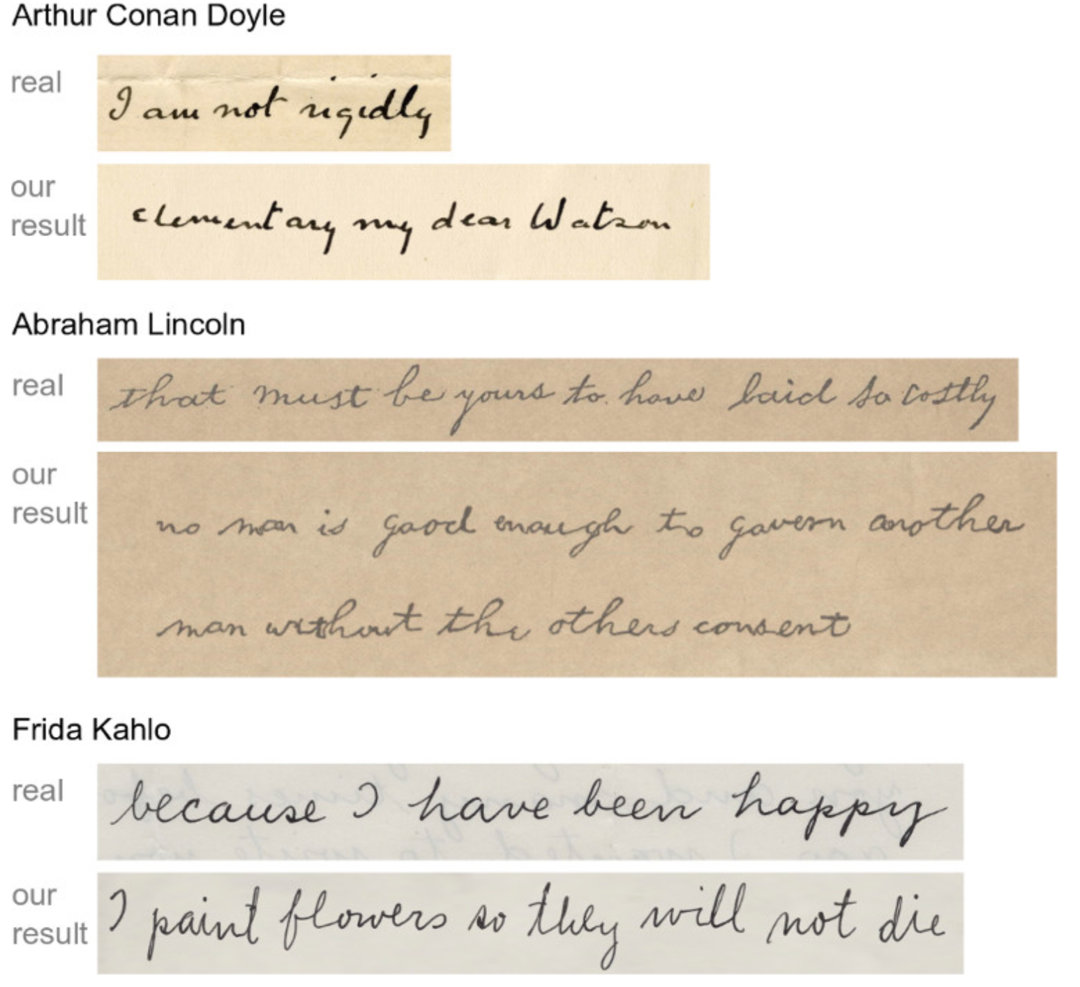 Arthur Conan Doyle
real
I am not rigidly
our
result
elementary my dear Watson
Abraham Lincoln
real
that must be yours to have laid so costly
our
result
no man is good enough to govern another
man without the others consent
Frida Kahlo
real
because I have been happy
our
result
I paint flowers so they will not die